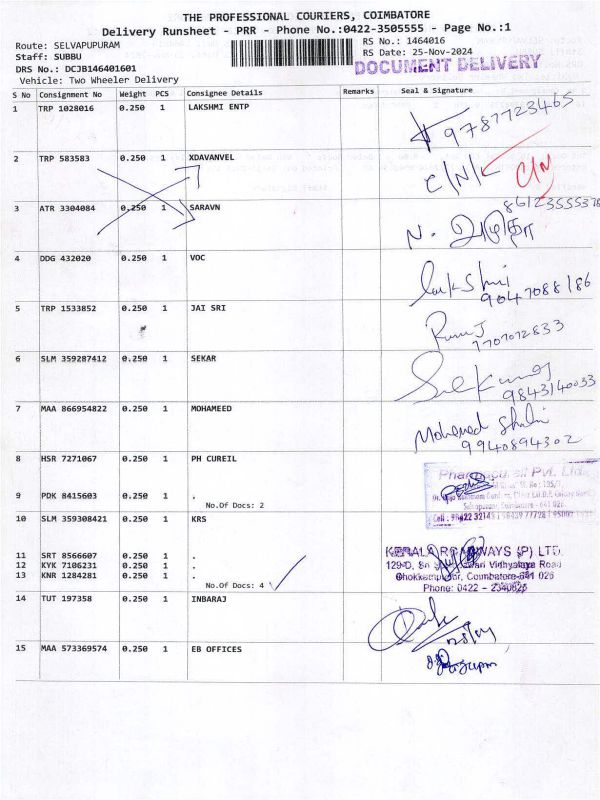 THE PROFESSIONAL COURIERS, COIMBATORE
Delivery Runsheet - PRR - Phone No.:0422-3505555 - Page No.:1
Route: SELVAPUPURAM
RS No.: 1464016
Staff: SUBBU
RS Date: 25-Nov-2024
DRS No.: DCJB146401601
DOCUMENT DELIVERY
Vehicle: Two Wheeler Delivery
S No Consignment No Weight PCS Consignee Details Remarks Seal & Signature
1 TRP 1028016 0.250 1 LAKSHMI ENTP 9787723465
2 TRP 583583 0.250 1 XDAVANVEL C/N/L C/N
3 ATR 3304084 0.250 1 SARAVN
N. அமுதா
4 DDG 432020 0.250 1 VOC Lakshmi
9047088186
5 TRP 1533852 0.250 1 JAI SRI
7707072833
6 SLM 359287412 0.250 1 SEKAR
9843140033
7 MAA 866954822 0.250 1 MOHAMEED Mohamed
9940894302
8 HSR 7271067 0.250 1 PH CUREIL
Pvt. Ltd.
9 PDK 8415603 0.250 1 .
No.Of Docs: 2
10 SLM 359308421 0.250 1 KRS
KERALA ROADWAYS (P) LTD.
11 SRT 8566607 0.250 1 .
12 KYK 7106231 0.250 1 .
13 KNR 1284281 0.250 1 .
No.Of Docs: 4
Coimbatore-641 026
Phone: 0422 - 2340626
14 TUT 197358 0.250 1 INBARAJ
15 MAA 573369574 0.250 1 EB OFFICES